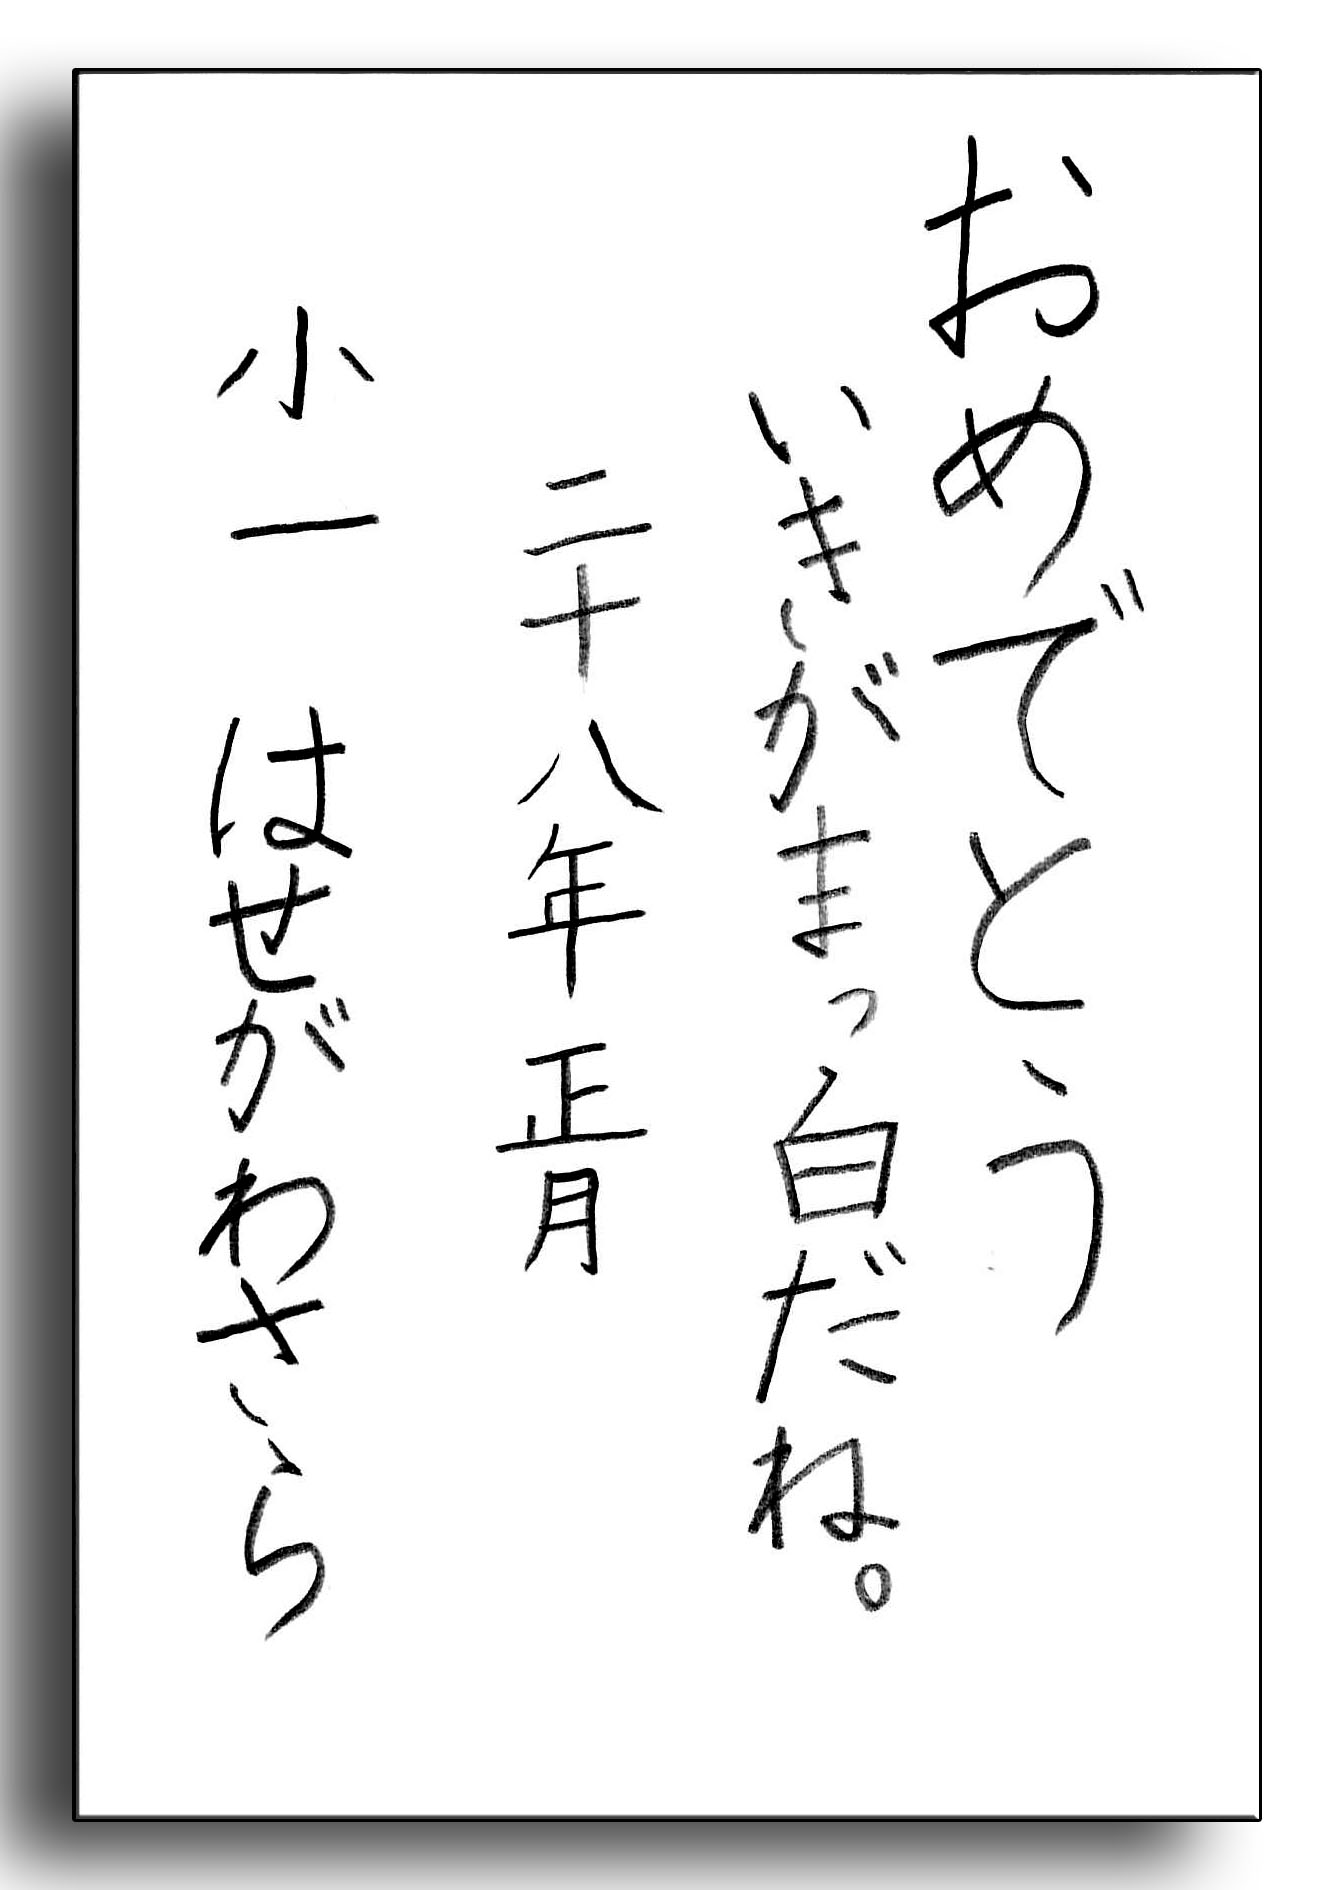 おめでとう
いきがまっ白だね。
二十八年正月
小一 はせがわさら